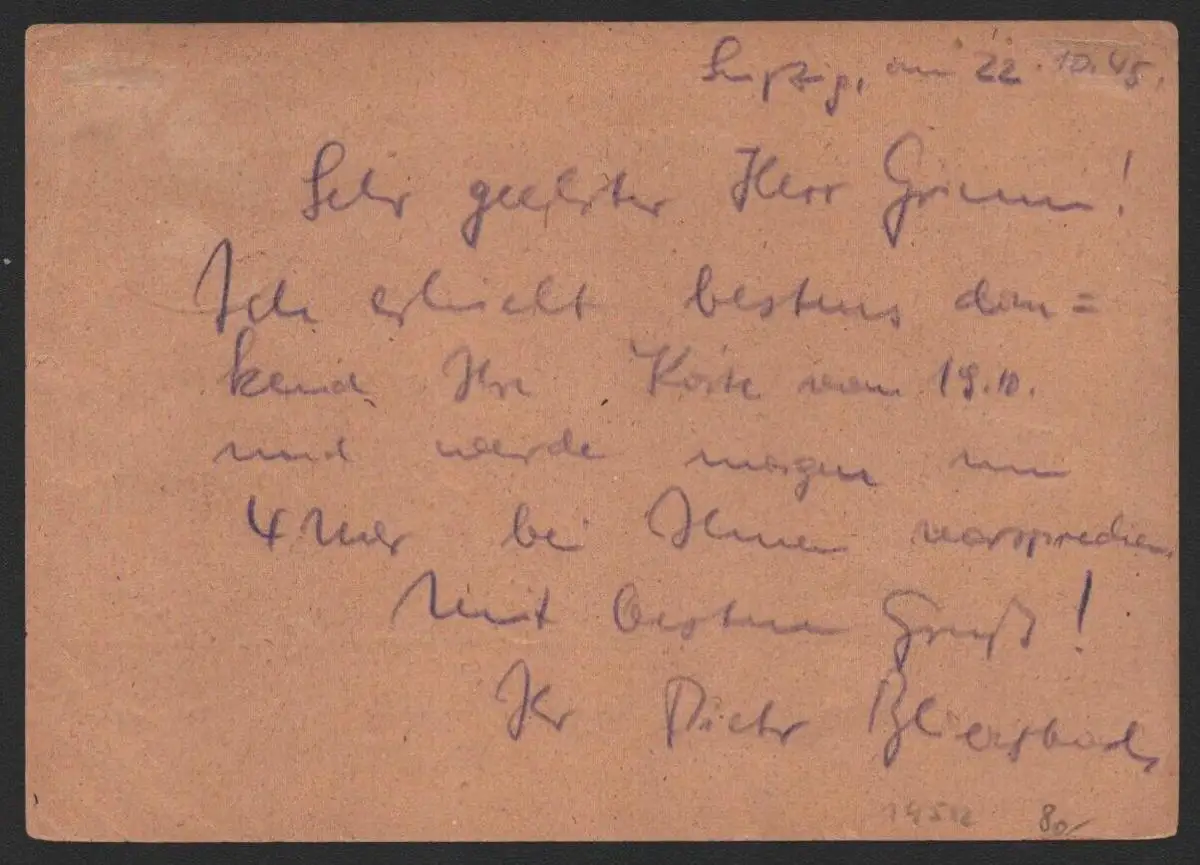 Leipzig, am 22.10.45.
Sehr geehrter Herr Grimm!
Ich erhielt bestens dan=
kend Ihre Karte vom 19.10.
und werde morgen um
4 Uhr bei Ihnen vorsprechen.
Mit bestem Gruß!
Ihr Dieter
80,-